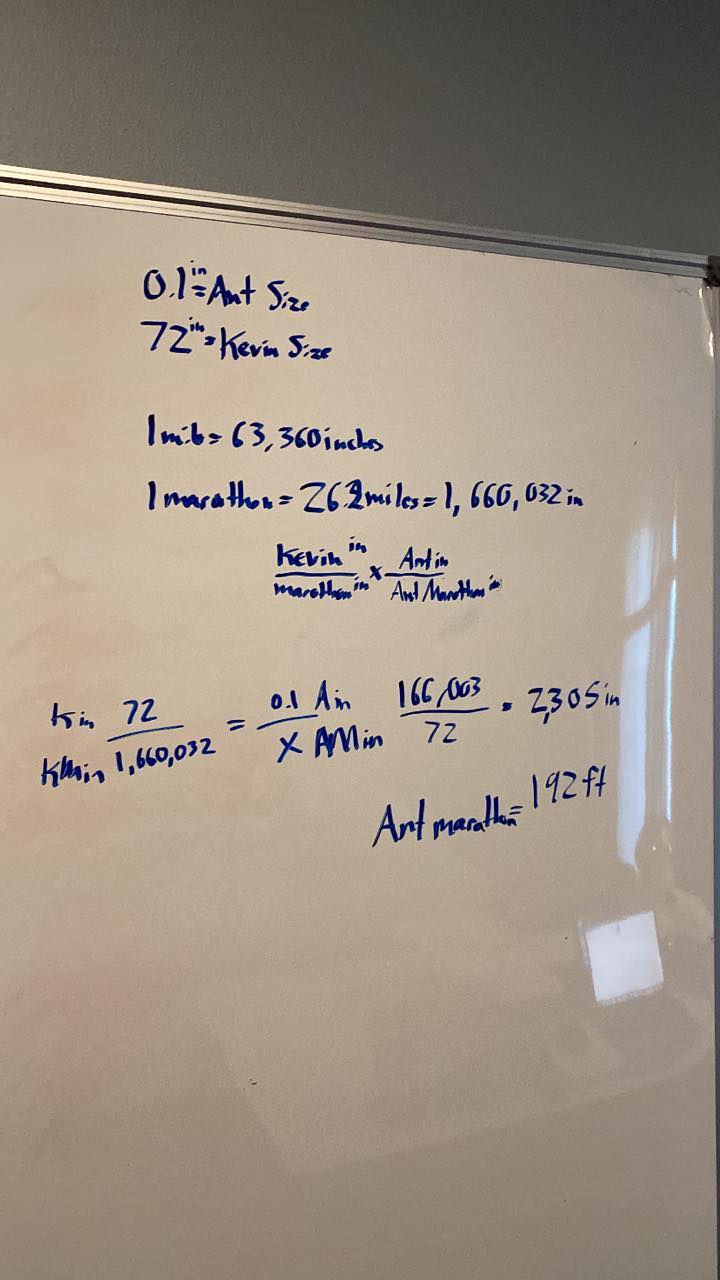 0.1 in = Ant Size
72 in = Kevin Size
1 mile = 63,360 inches
1 marathon = 26.2 miles = 1,660,032 in
Kevin in / marathon in x Ant in / Ant Marathon in
K in 72 / KM in 1,660,032 = 0.1 A in / X AM in 166,003 / 72 = 2,305 in
Ant marathon = 192 ft